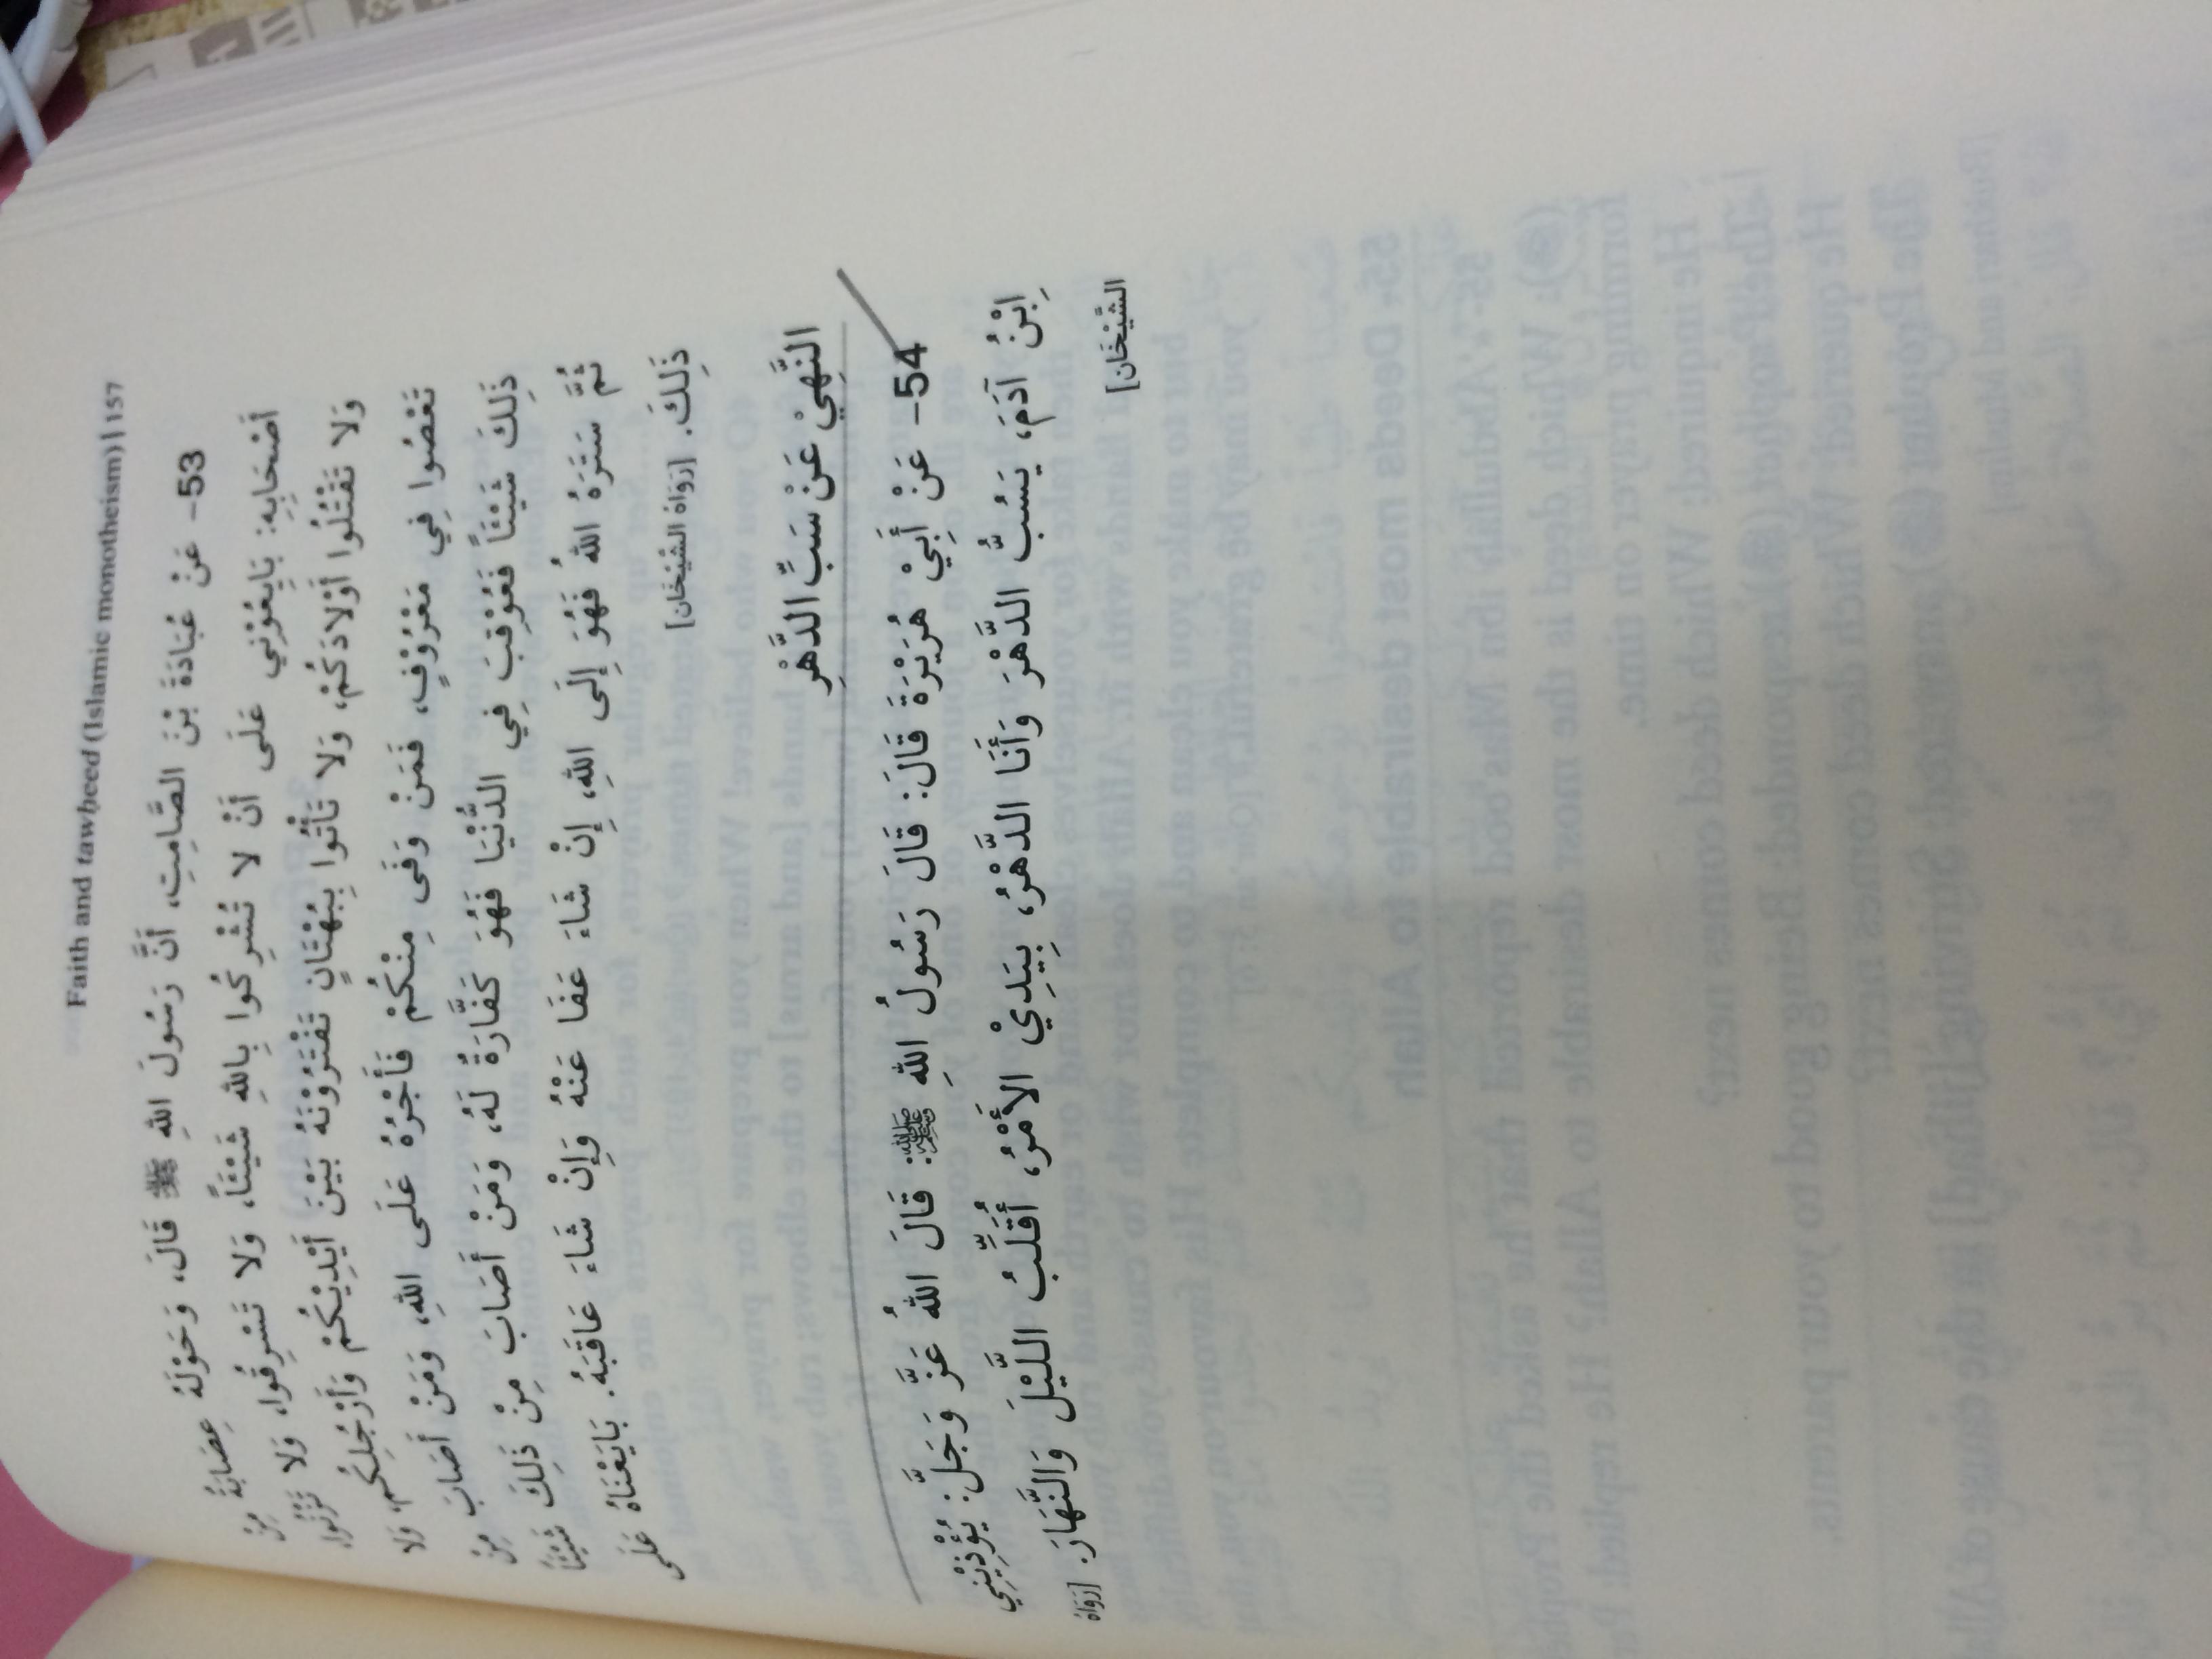 Faith and tawḥeed (Islamic monotheism) | 157
53- عَنْ عُبَادَةَ بْنَ الصَّامِتِ، أَنَّ رَسُولَ اللهِ ﷺ قَالَ، وَحَوْلَهُ عِصَابَةٌ مِنْ
أَصْحَابِهِ: بَايِعُوْنِي عَلَى أَنْ لا تُشْرِكُوا بِاللهِ شَيْئاً، وَلا تَسْرِقُوا، وَلا تَزْنُوا،
وَلا تَقْتُلُوا أَوْلادَكُمْ، وَلا تَأْتُوا بِبُهْتَانٍ تَفْتَرُوْنَهُ بَيْنَ أَيْدِيْكُمْ وَأَرْجُلِكُم، وَلا
تَعْصُوا فِي مَعْرُوْفٍ، فَمَنْ وَفَى مِنْكُمْ فَأَجْرُهُ عَلَى اللهِ، وَمَنْ أَصَابَ مِنْ
ذَلِكَ شَيْئاً فَعُوْقِبَ فِي الدُّنْيَا فَهُوَ كَفَّارَةٌ لَهُ، وَمَنْ أَصَابَ مِنْ ذَلِكَ شَيْئاً
ثُمَّ سَتَرَهُ اللهُ فَهُوَ إِلَى اللهِ، إِنْ شَاءَ عَفَا عَنْهُ وَإِنْ شَاءَ عَاقَبَهُ. بَايَعْنَاهُ عَلَى
ذَلِكَ. [رَوَاهُ الشَّيْخَان]
النَّهِيْ عَنْ سَبِّ الدَّهْرِ
54- عَنْ أَبِيْ هُرَيْرَةَ قَالَ: قَالَ رَسُولُ اللهِ ﷺ: قَالَ اللهُ عَزَّ وَجَلَّ: يُؤْذِيْنِي
اِبْنُ آدَمَ، يَسُبُّ الدَّهْرَ وَأَنَا الدَّهْرُ، بِيَدِيْ الأَمْرُ، أُقَلِّبُ اللَّيْلَ وَالنَّهَارَ. [رَوَاهُ
الشَّيْخَان]